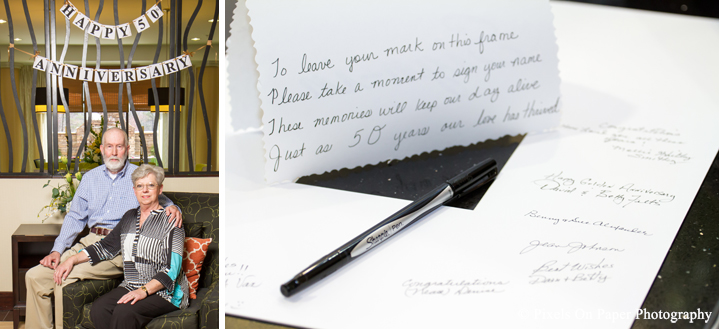 HAPPY 50
ANNIVERSARY
To leave your mark on this frame
Please take a moment to sign your name
These memories will keep our day alive
Just as 50 years our love has thrived
Congratulations
Happy Golden Anniversary
David & Betty
Jean Johnson
Best Wishes
Congratulations
Sharpie PEN
On Paper Photography